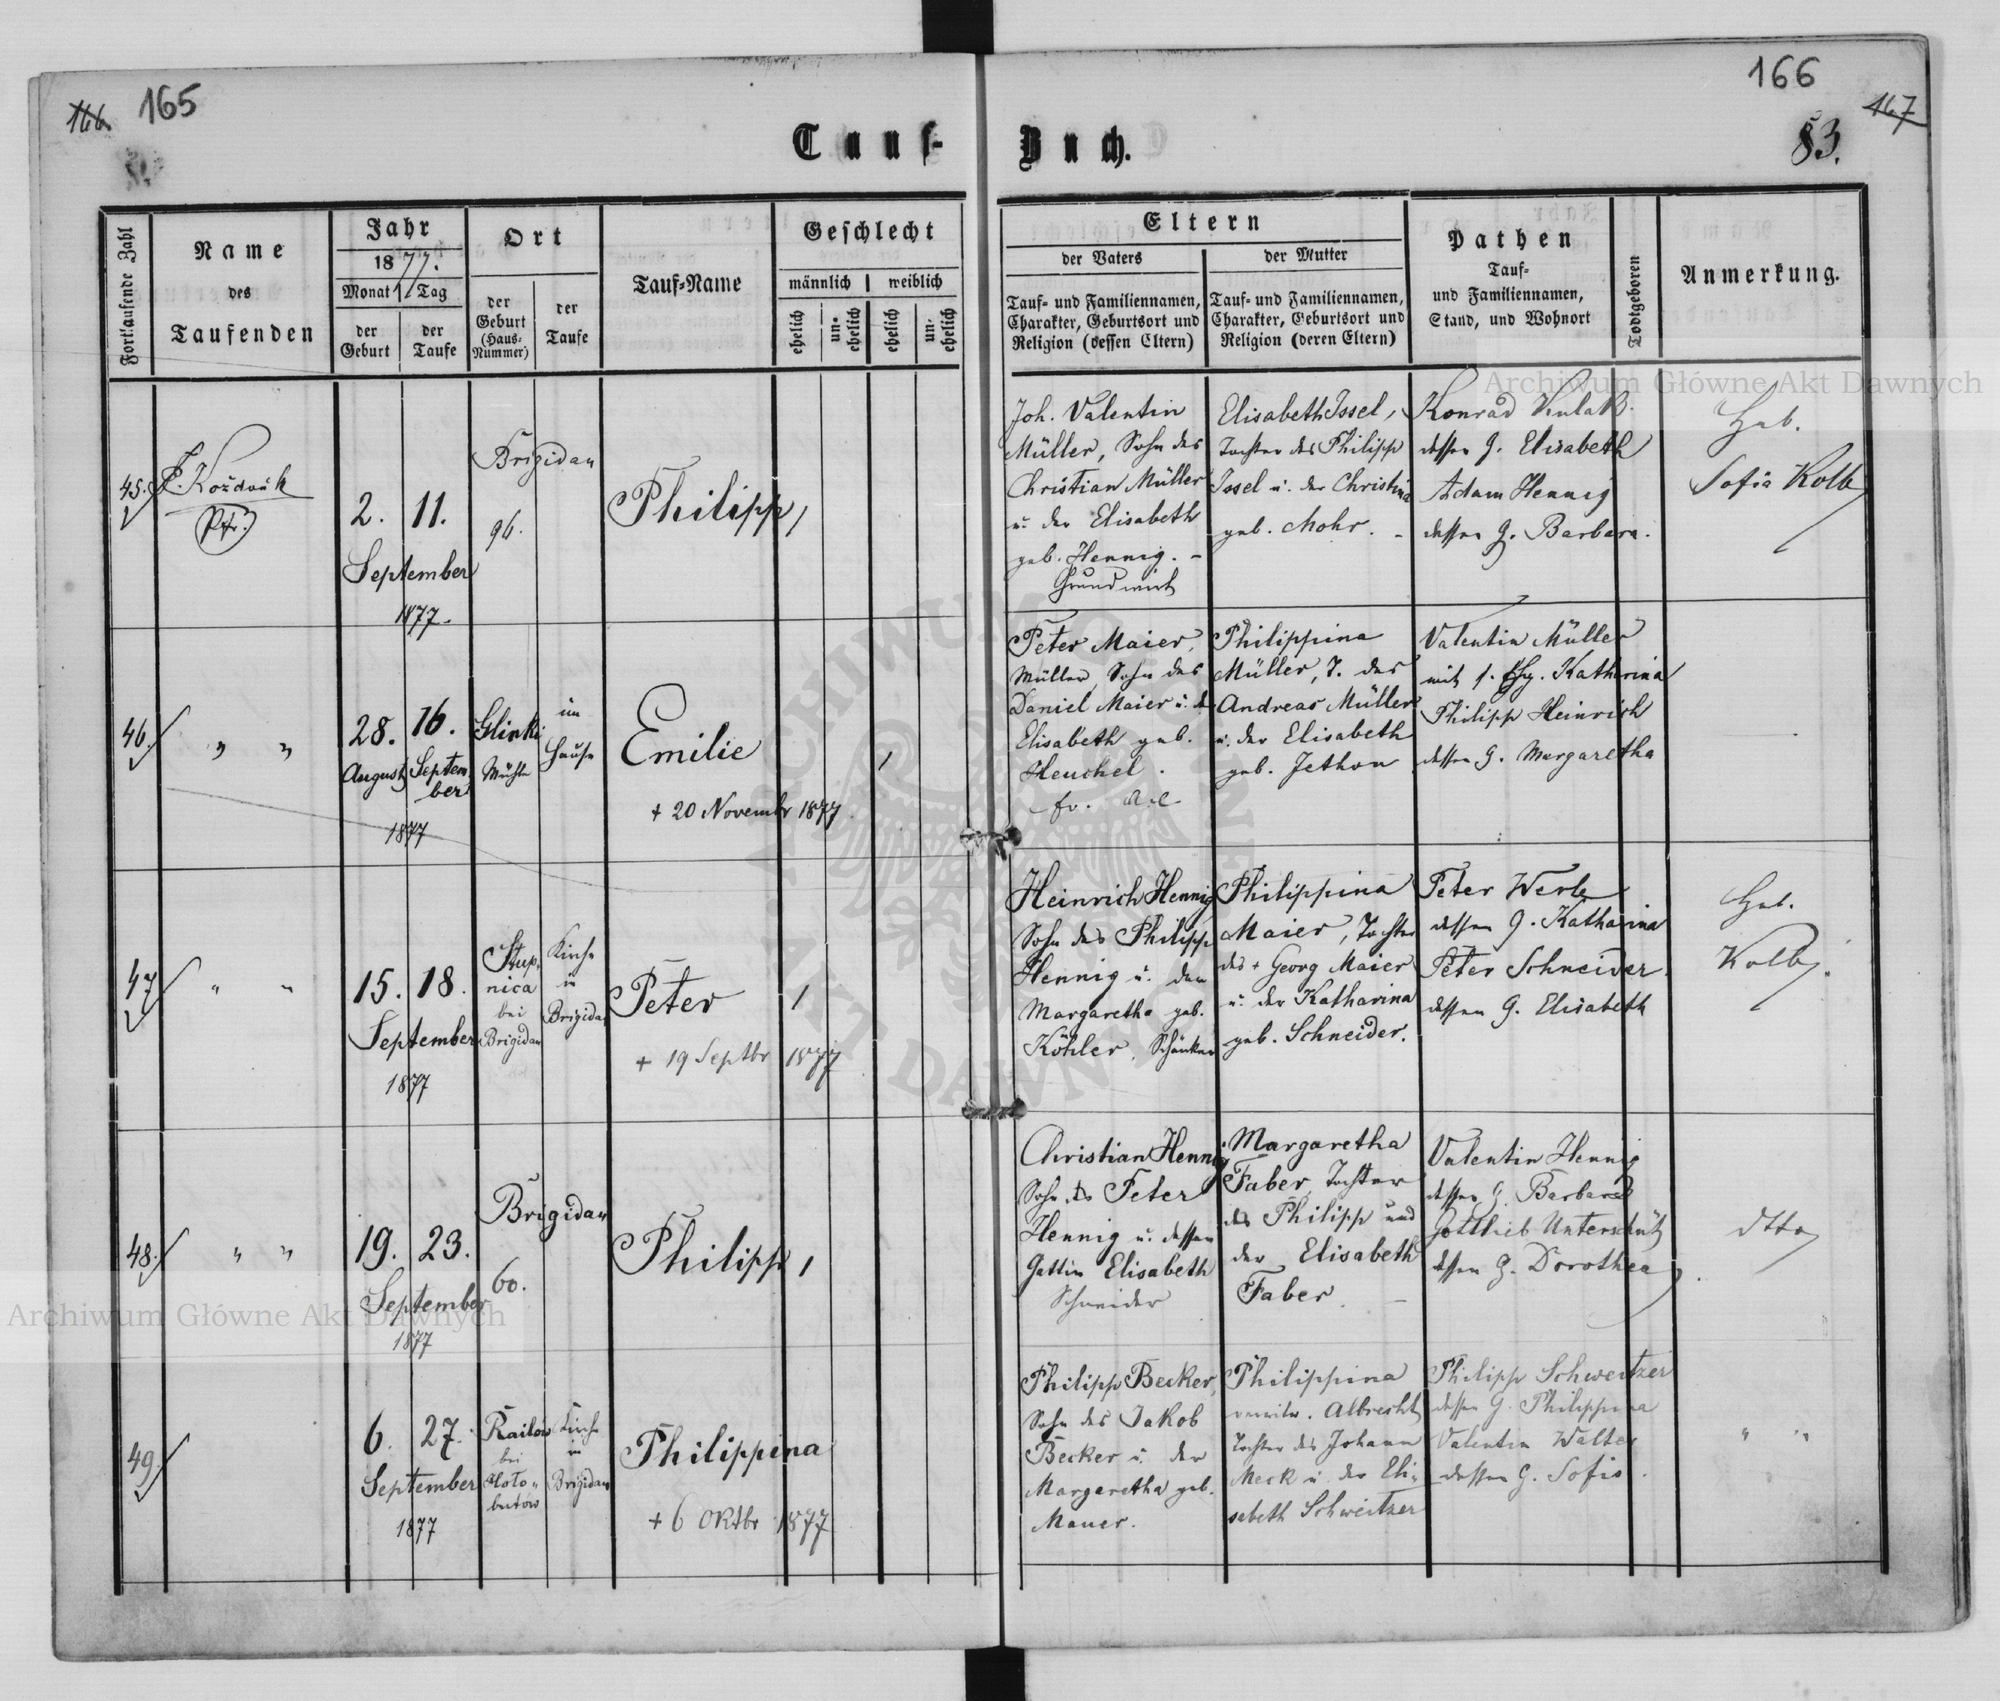 166.
165
166
167
Tauf-
Buch.
83.
Fortlaufende Zahl
Name
des
Taufenden
Jahr
1877.
Monat
Tag
der
Geburt
der
Taufe
Ort
der
Geburt
(Haus-
Nummer)
der
Taufe
Tauf-Name
Geschlecht
männlich
weiblich
ehelich
un-
ehelich
ehelich
un-
ehelich
Eltern
der Vaters
der Mutter
Tauf- und Familiennamen,
Charakter, Geburtsort und
Religion (dessen Eltern)
Tauf- und Familiennamen,
Charakter, Geburtsort und
Religion (deren Eltern)
Pathen
Tauf-
und Familiennamen,
Stand, und Wohnort
Todtgeboren
Anmerkung.
45.
Pfr.
2. 11.
September
1877.
Brigidau
96.
Philipp
Joh. Valentin
Müller, Sohn des
Christian Müller
u. der Elisabeth
geb. Hennig. –
Grundwirt
Elisabeth Issel,
Tochter des Philipp
Issel u. der Christina
geb. Mohr. –
Konrad
dessen G. Elisabeth
Adam Hennig
dessen G. Barbara.
Heb.
Sofia Kolb
46.
" "
28. 16.
August
Septem
ber
1877
Glinki
Mühle
im
Hause
Emilie
+ 20 Novembr 1877
Peter Maier,
Müller, Sohn des
Daniel Maier u. d.
Elisabeth geb.
Heuchel.
Philippina
Müller, T. des
Andreas Müller
u. der Elisabeth
geb. Jethon
Valentin Müller
mit s. Katharina
Philipp Heinrich
dessen G. Margaretha
47
" "
15. 18.
September
1877
Stup-
nica
bei
Brigidau
Kirche
in
Brigidau
Peter
+ 19 Septbr 1877
Heinrich Hennig
Sohn des Philipp
Hennig u. der
Margaretha geb.
Köhler, Schänker
Philippina
Maier, Tochter
des + Georg Maier
u. der Katharina
geb. Schneider.
Peter Werle
dessen G. Katharina
Peter Schneider
dessen G. Elisabeth
Heb.
Kolb.
48.
" "
19. 23.
September
1877
Brigidau
60.
Philipp
Christian Hennig
Sohn des Peter
Hennig u. dessen
Gattin Elisabeth
Schneider
Margaretha
Faber, Tochter
des Philipp und
der Elisabeth
Faber. –
Valentin Hennig
dessen G. Barbara
Gottlieb Unterschütz
dessen G. Dorothea
dtto
49.
6. 27.
September
1877
Railow
bei
Hoło-
butów
Kirche
in
Brigidau
Philippina
+ 6 Oktbr 1877
Philipp Becker,
Sohn des Jakob
Becker u. der
Margaretha geb.
Mauer.
Philippina
verwitw. Albrecht
Tochter des Johann
Meck u. der Eli-
sabeth Schweitzer
Philipp Schweitzer
dessen G. Philippina
Valentin Walter
dessen G. Sofia.
" "
Archiwum Główne Akt Dawnych
Archiwum Główne Akt Dawnych